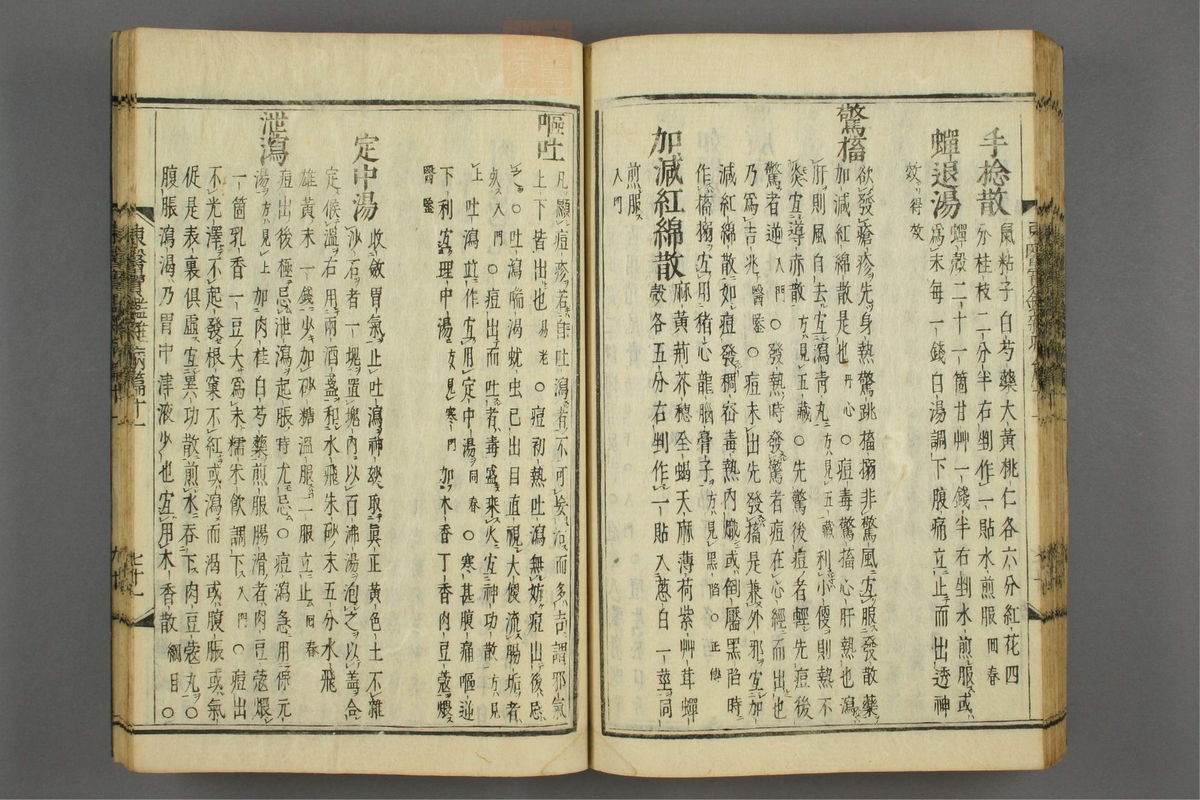 手捻散 鼠粘子白芍藥大黃桃仁各六分紅花四
分桂枝二分半右剉作一貼水煎服 回春
蟬退湯 蟬殼二十一箇甘艸一錢半右剉水煎服或
爲末每一錢白湯調下腹痛立止而出透神
效 得效
驚搐 欲發瘡疹先身熱驚跳搐搦非驚風宜服發散藥
加減紅綿散是也 丹心 ○痘毒驚搐心肝熱也瀉
肝則風自去宜瀉靑丸 方見五藏 利小便則熱不
炎宜導赤散 方見五藏 ○先驚後痘者輕先痘後
驚者逆 入門 ○發熱時發驚者痘在心經而出也
乃爲吉兆 醫鑒 ○痘未出先發搐是兼外邪宜加
減紅綿散如痘發稠密毒熱內熾或倒靨黑陷時
作搐搦宜用猪心龍腦膏子 方見黑陷 ○ 正傳
加減紅綿散 麻黃荊芥穗全蝎天麻薄荷紫艸茸蟬
殼各五分右剉作一貼入蔥白一莖同
煎服
入門
嘔吐 凡顯痘疹若自吐瀉者不可妄治而多吉謂邪氣
上下皆出也 易老 ○痘初熱吐瀉無妨痘出後忌
之○吐瀉喘渴蚘虫已出目直視大便流腸垢者
死 入門 ○痘出而吐者毒盛乘火宜神功散 方見
上 吐瀉並作宜用定中湯 回春 ○寒甚腹痛嘔逆
下利宜理中湯 方見寒門 加木香丁香肉豆蔻煨
醫鑒
定中湯 收斂胃氣止吐瀉神玅取眞正黃色土不雜
沙石者一塊置塊內以百沸湯泡之以盖合
定候溫右用兩酒盞和水飛朱砂末五分水飛
雄黃末一錢少加砂糖溫服二服立止 回春
泄瀉 痘出後極忌泄瀉起脹時尤忌○痘瀉急用保元
湯 方見上 加肉桂白芍藥煎服腸滑者肉豆蔻煨
一箇乳香一豆大爲末糯米飮調下 入門 ○痘出
不光澤不起發根窠不紅或瀉而渴或腹脹或氣
促是表裏俱虛宜異功散煎水吞下肉豆蔻丸○
腹脹瀉渴乃胃中津液少也宜用木香散 綱目 ○
東醫寶鑑雜病篇十一